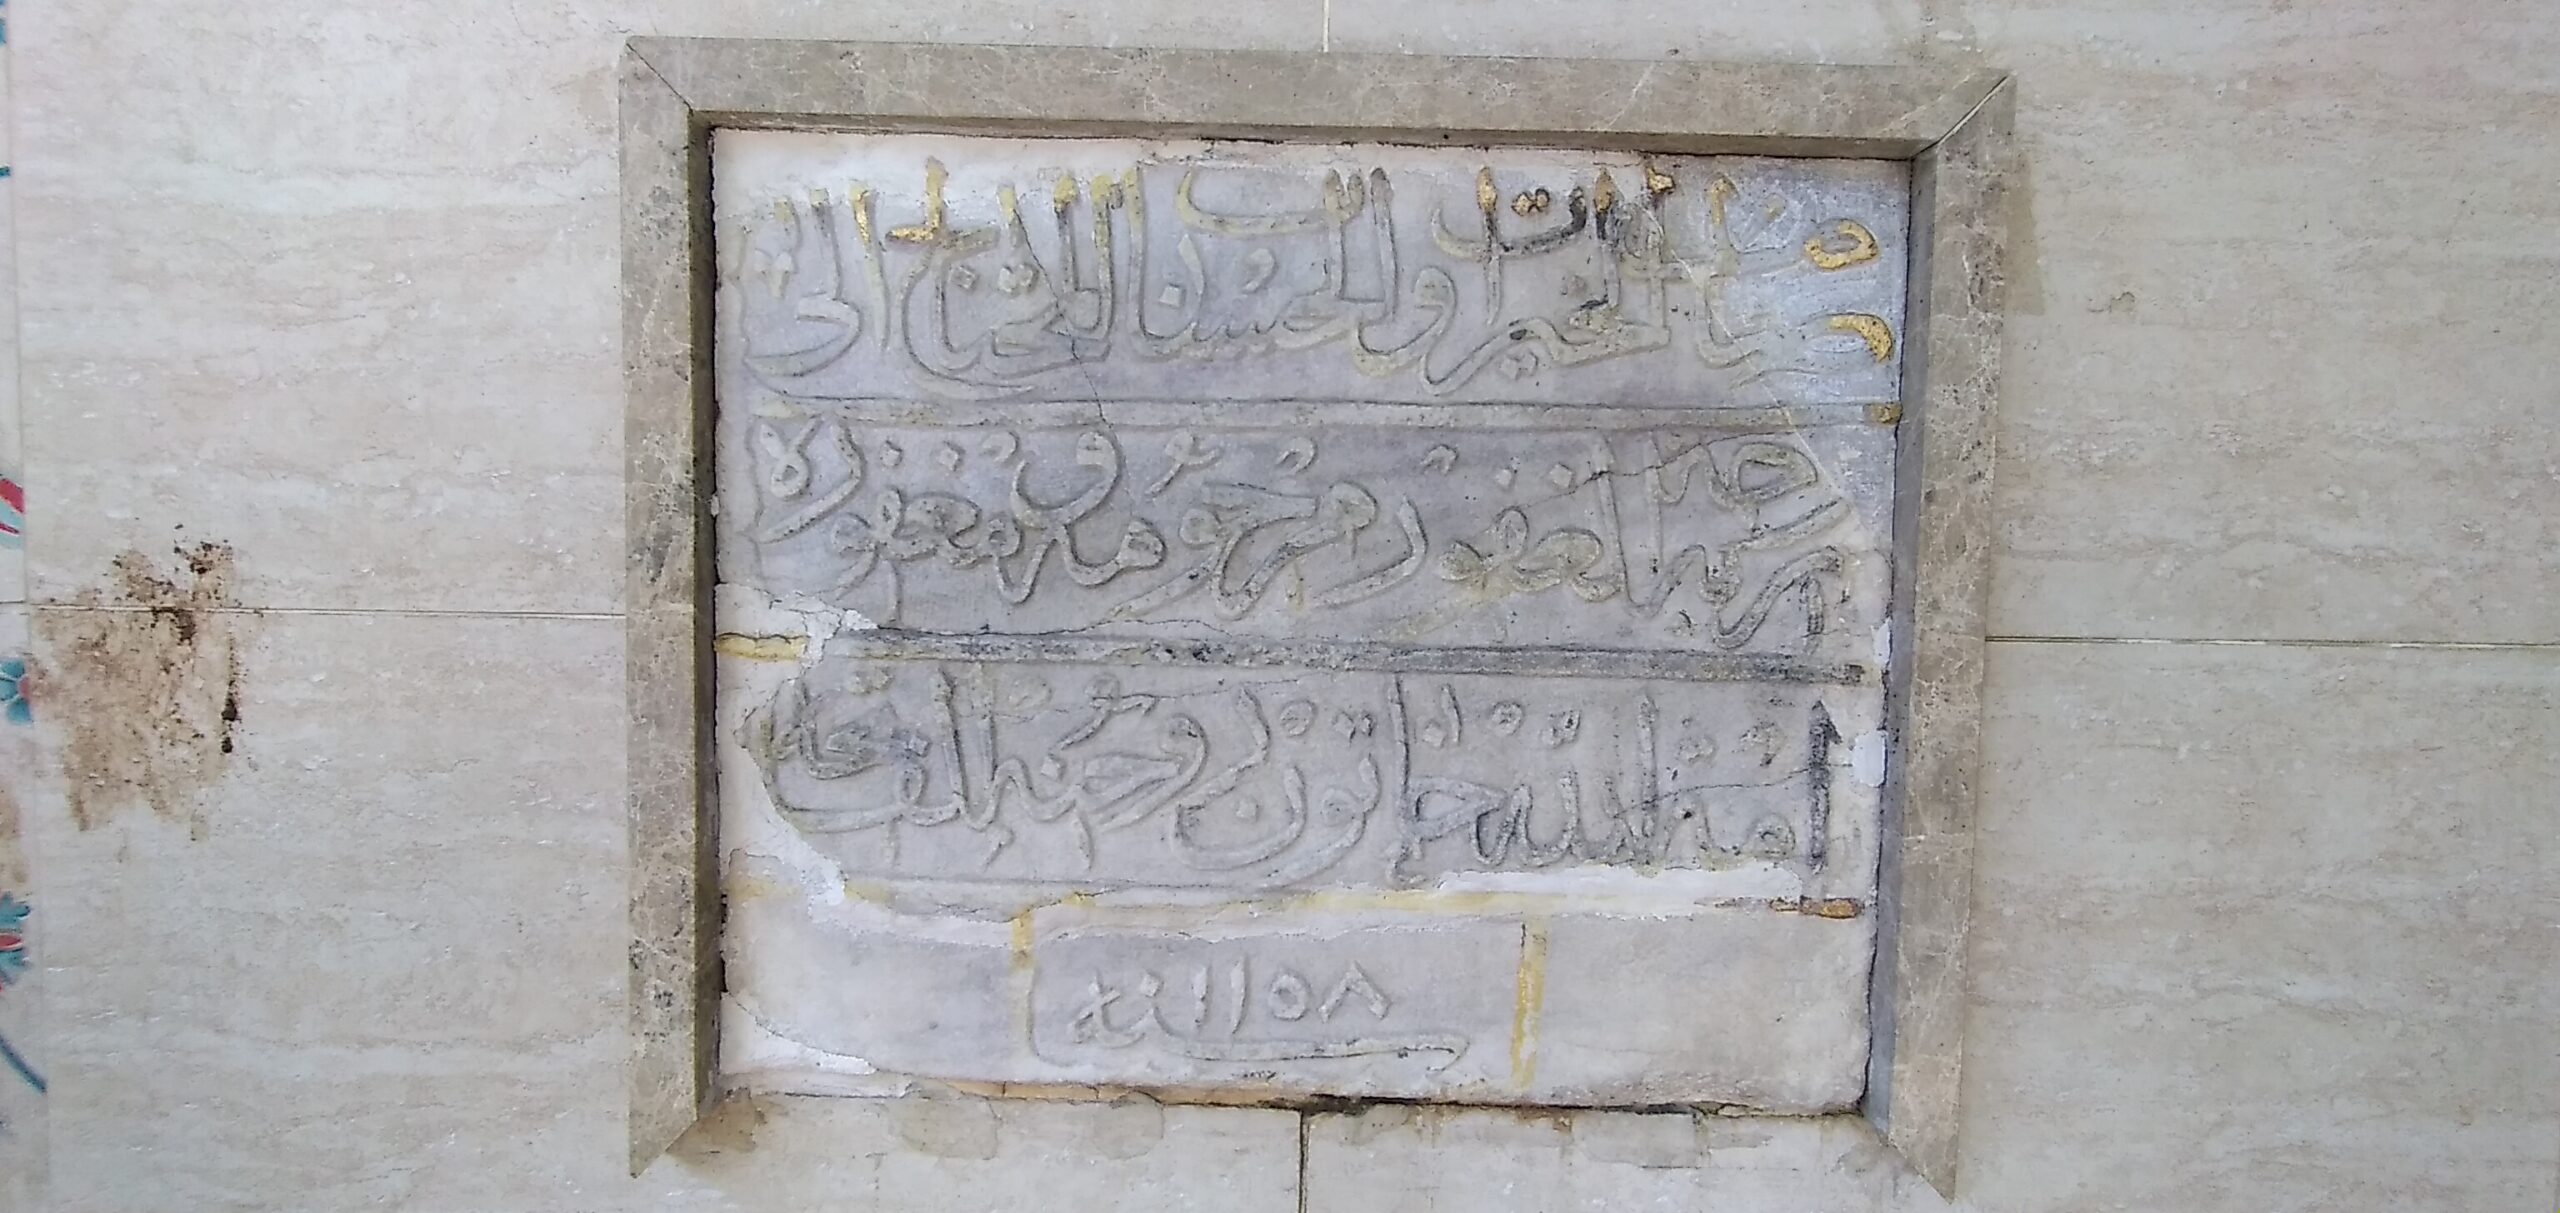 صاحب الخيرات والحسنات المحتاج الى
ربه الغفور مرحومه ومغفوره
امة الله خاتون روحنه الفاتحه
سنه ١١٥٨